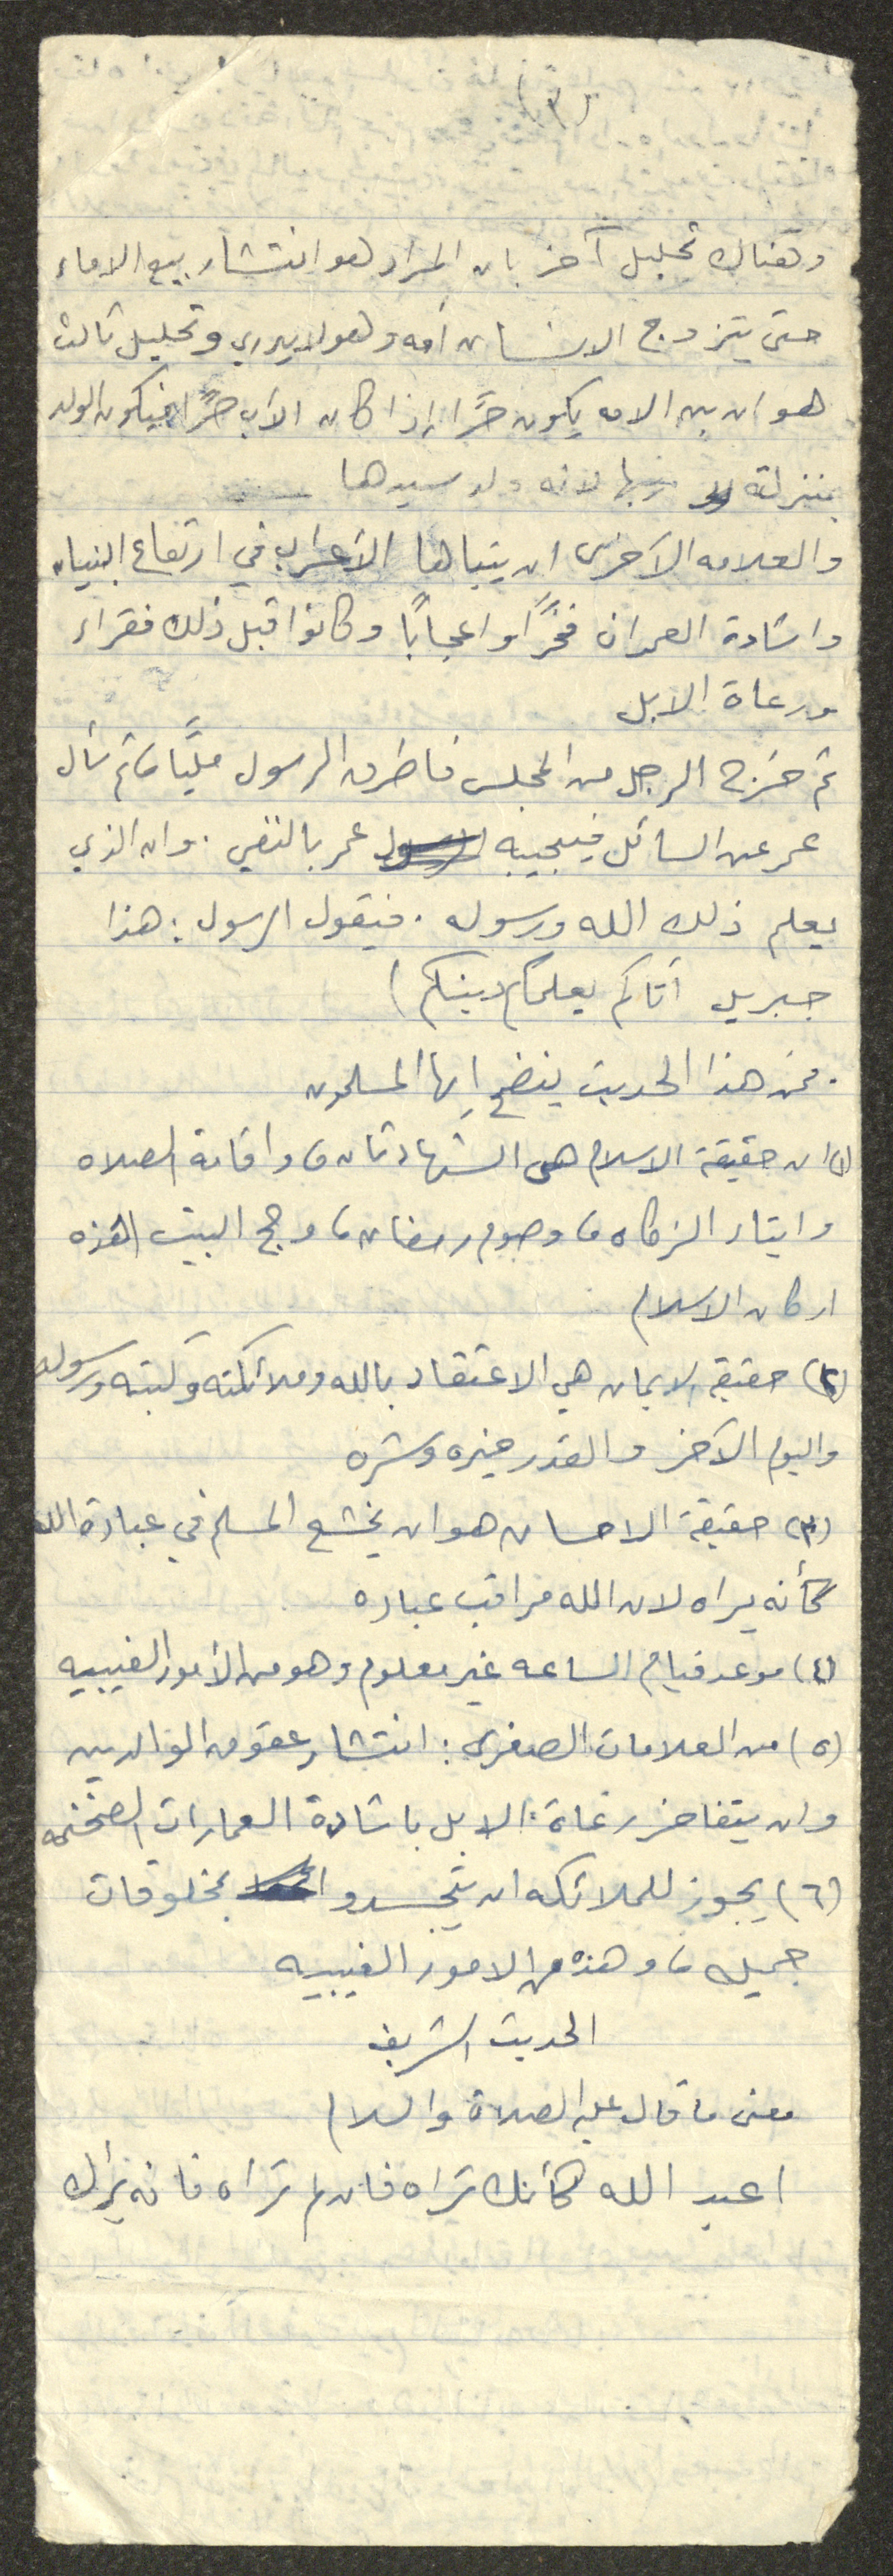 (٣)
وهناك تحليل آخر بان المراد هو انتشار بيع الاماء
حتى يتزوج الانسان أمه وهو لا يدري وتحليل ثالث
هو ان بن الامه يكون حرًّا إذا كان الأب حرًّا فيكون الولد
بمنزلة ربها لانه ولد سيدها
والعلامه الآخرى ان يتباها الأعراب في ارتفاع البنيان
واشادة العمران فخرًا واعجابًا وكانوا قبل ذلك فقراء
ورعاة الابل
ثم خرج الرجل من المجلس فاطرق الرسول مليًّا، ثم سأل
عمر عن السائل فيجيبه عمر بالنفي. وان الذي
يعلم ذلك الله ورسوله. فيقول الرسول: هذا
جبريل أتاكم يعلمكم دينكم)
. فمن هذا الحديث يتضح ايها المسلمون
(١) ان حقيقة الاسلام هي الشهادتان، واقامة الصلاه
وايتاء الزكاه، وصوم رمضان، وحج البيت فهذه
اركان الاسلام
(٢) حقيقه الايمان هي الاعتقاد بالله وملائكته وكتبه ورسوله
واليوم الآخر والقدر خيره وشره
(٣) حقيقة الاحسان هو ان يخشع المسلم في عبادة الله
كأنه يراه لان الله مراقب عباده
(٤) موعد قيام الساعه غير معلوم وهو من الأمور الغيبيه
(٥) من العلامات الصغرى: انتشار عقوق الوالدين
وان يتفاخر رعاة الابل باشادة العمارات الضخمه
(٦) يجوز للملائكه ان يتجسدوا بمخلوقات
جميله، وهذه من الامور الغيبيه
الحديث الشريف
معنى ما قال عليه الصلاة والسلام
اعبد الله كأنك تراه فان لم تراه فانه يراك